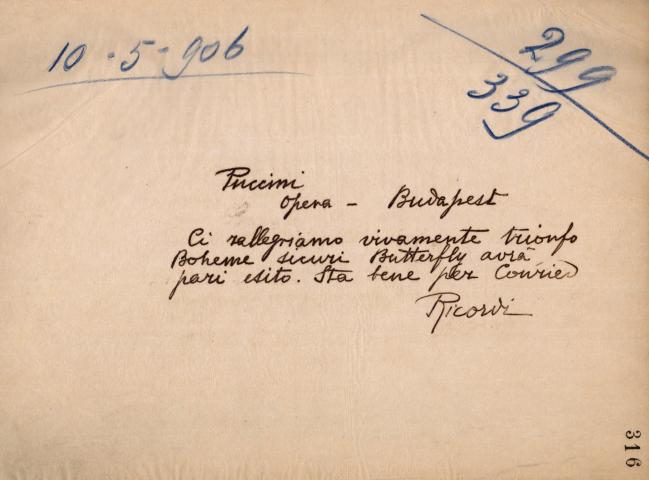 10-5-906
299
339
Puccini
Opera - Budapest
Ci rallegriamo vivamente trionfo
Boheme sicuri Butterfly avrà
pari esito. Sta bene per Couried
Ricordi
316